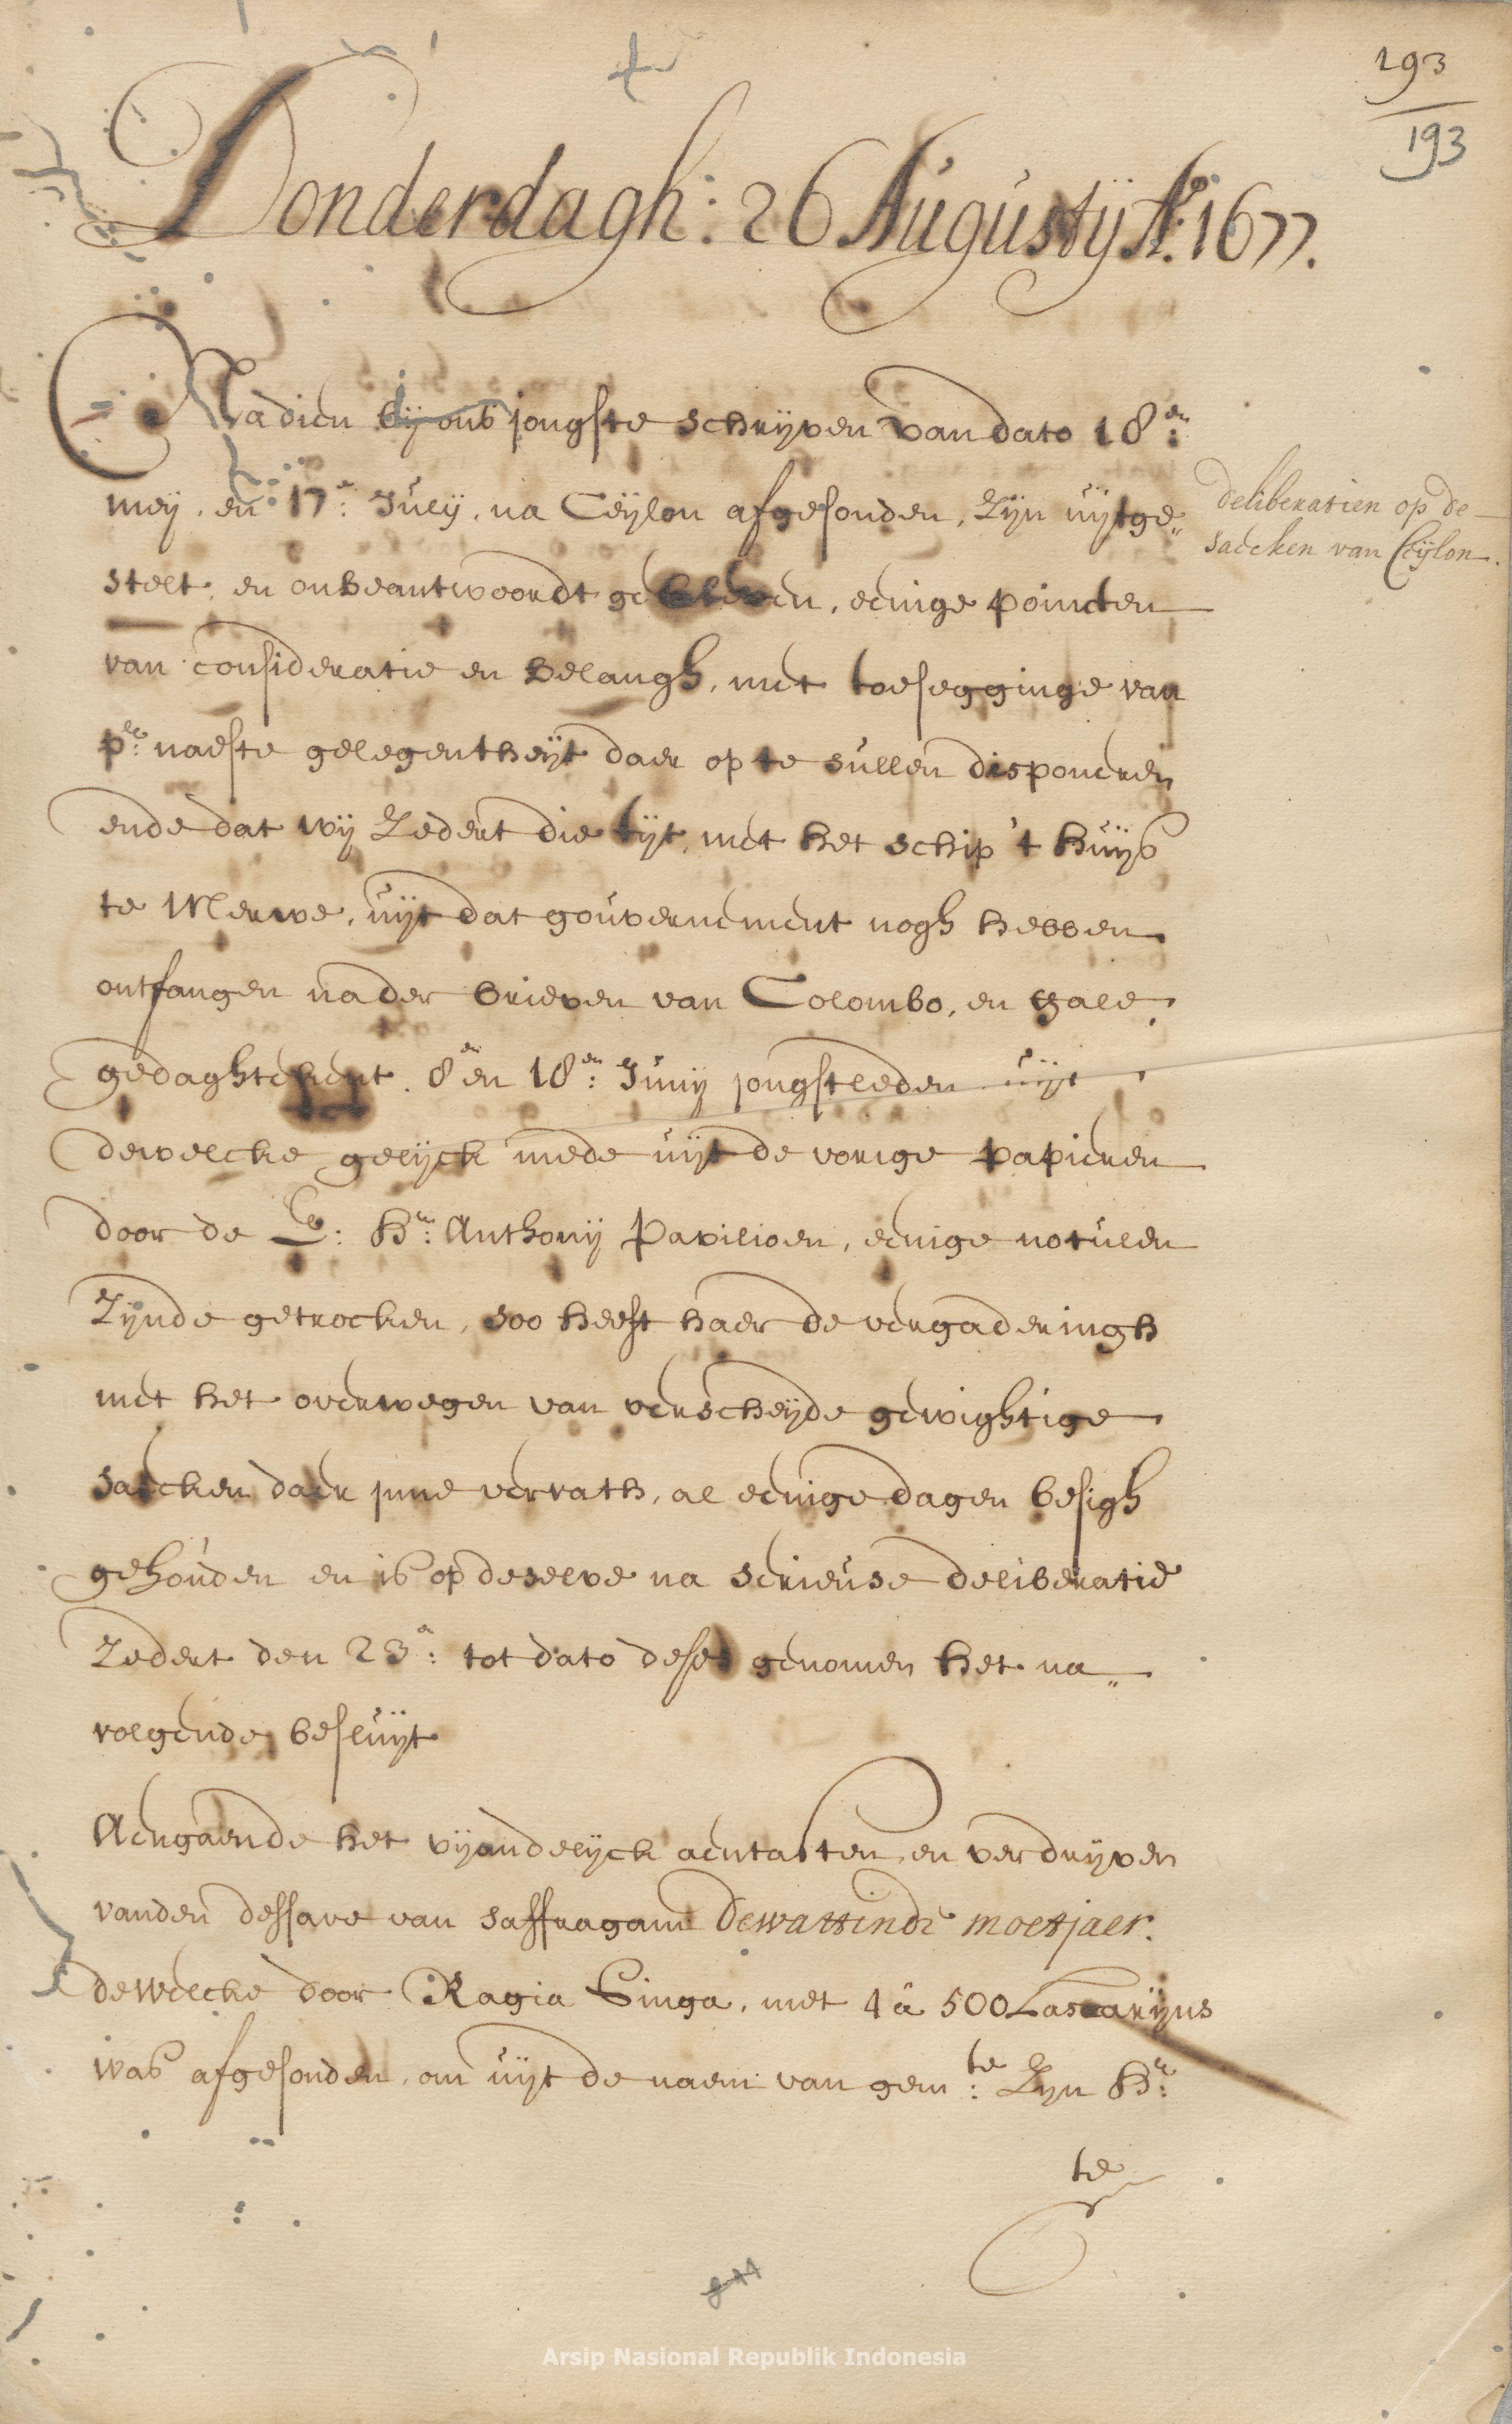 193
193
Donderdagh: 26 Augustij Ao: 1677.
Nadien bij ons jongste schrijven van dato 18en:
meij, en 17e: Julij, na Ceijlon afgesonden, zijn uijtge„
stelt, en onbeantwoordt gebleven, eenige poincten
van consideratie en belangh, met toesegginge van
pr: naeste gelegentheijt daer op te sullen disponeren
ende dat wij zedert die tijt, met het schip 't huijs
te Merwe, uijt dat gouvernement nogh hebben
ontfangen nader brieven van Colombo, en gale,
gedaghtekent 8en 18en: Junij jongstleden uijt
dewelcke gelijck mede uijt de vorige papieren
door de E: Hr: Anthonij Pavilioen, eenige notulen
zijnde getrocken, soo heeft haer de vergaderingh
met het overwegen van verscheijde gewightige
saecken daer inne vervath, al eenige dagen besigh
gehouden en is op deselve na serieuse deliberatie
zedert den 23e: tot dato deses genomen het na„
volgende besluijt
Aengaende het vijandelijck aentasten, en verdrijven
vanden dessave van saffragam dewattinde moetjaer.
dewelcke door Ragia Singa, met 4 â 500 Lascarijns
was afgesonden, om uijt de naem van gem:te Zijn Hr:
te
deliberatien op de
saecken van Ceijlon.
Arsip Nasional Republik Indonesia